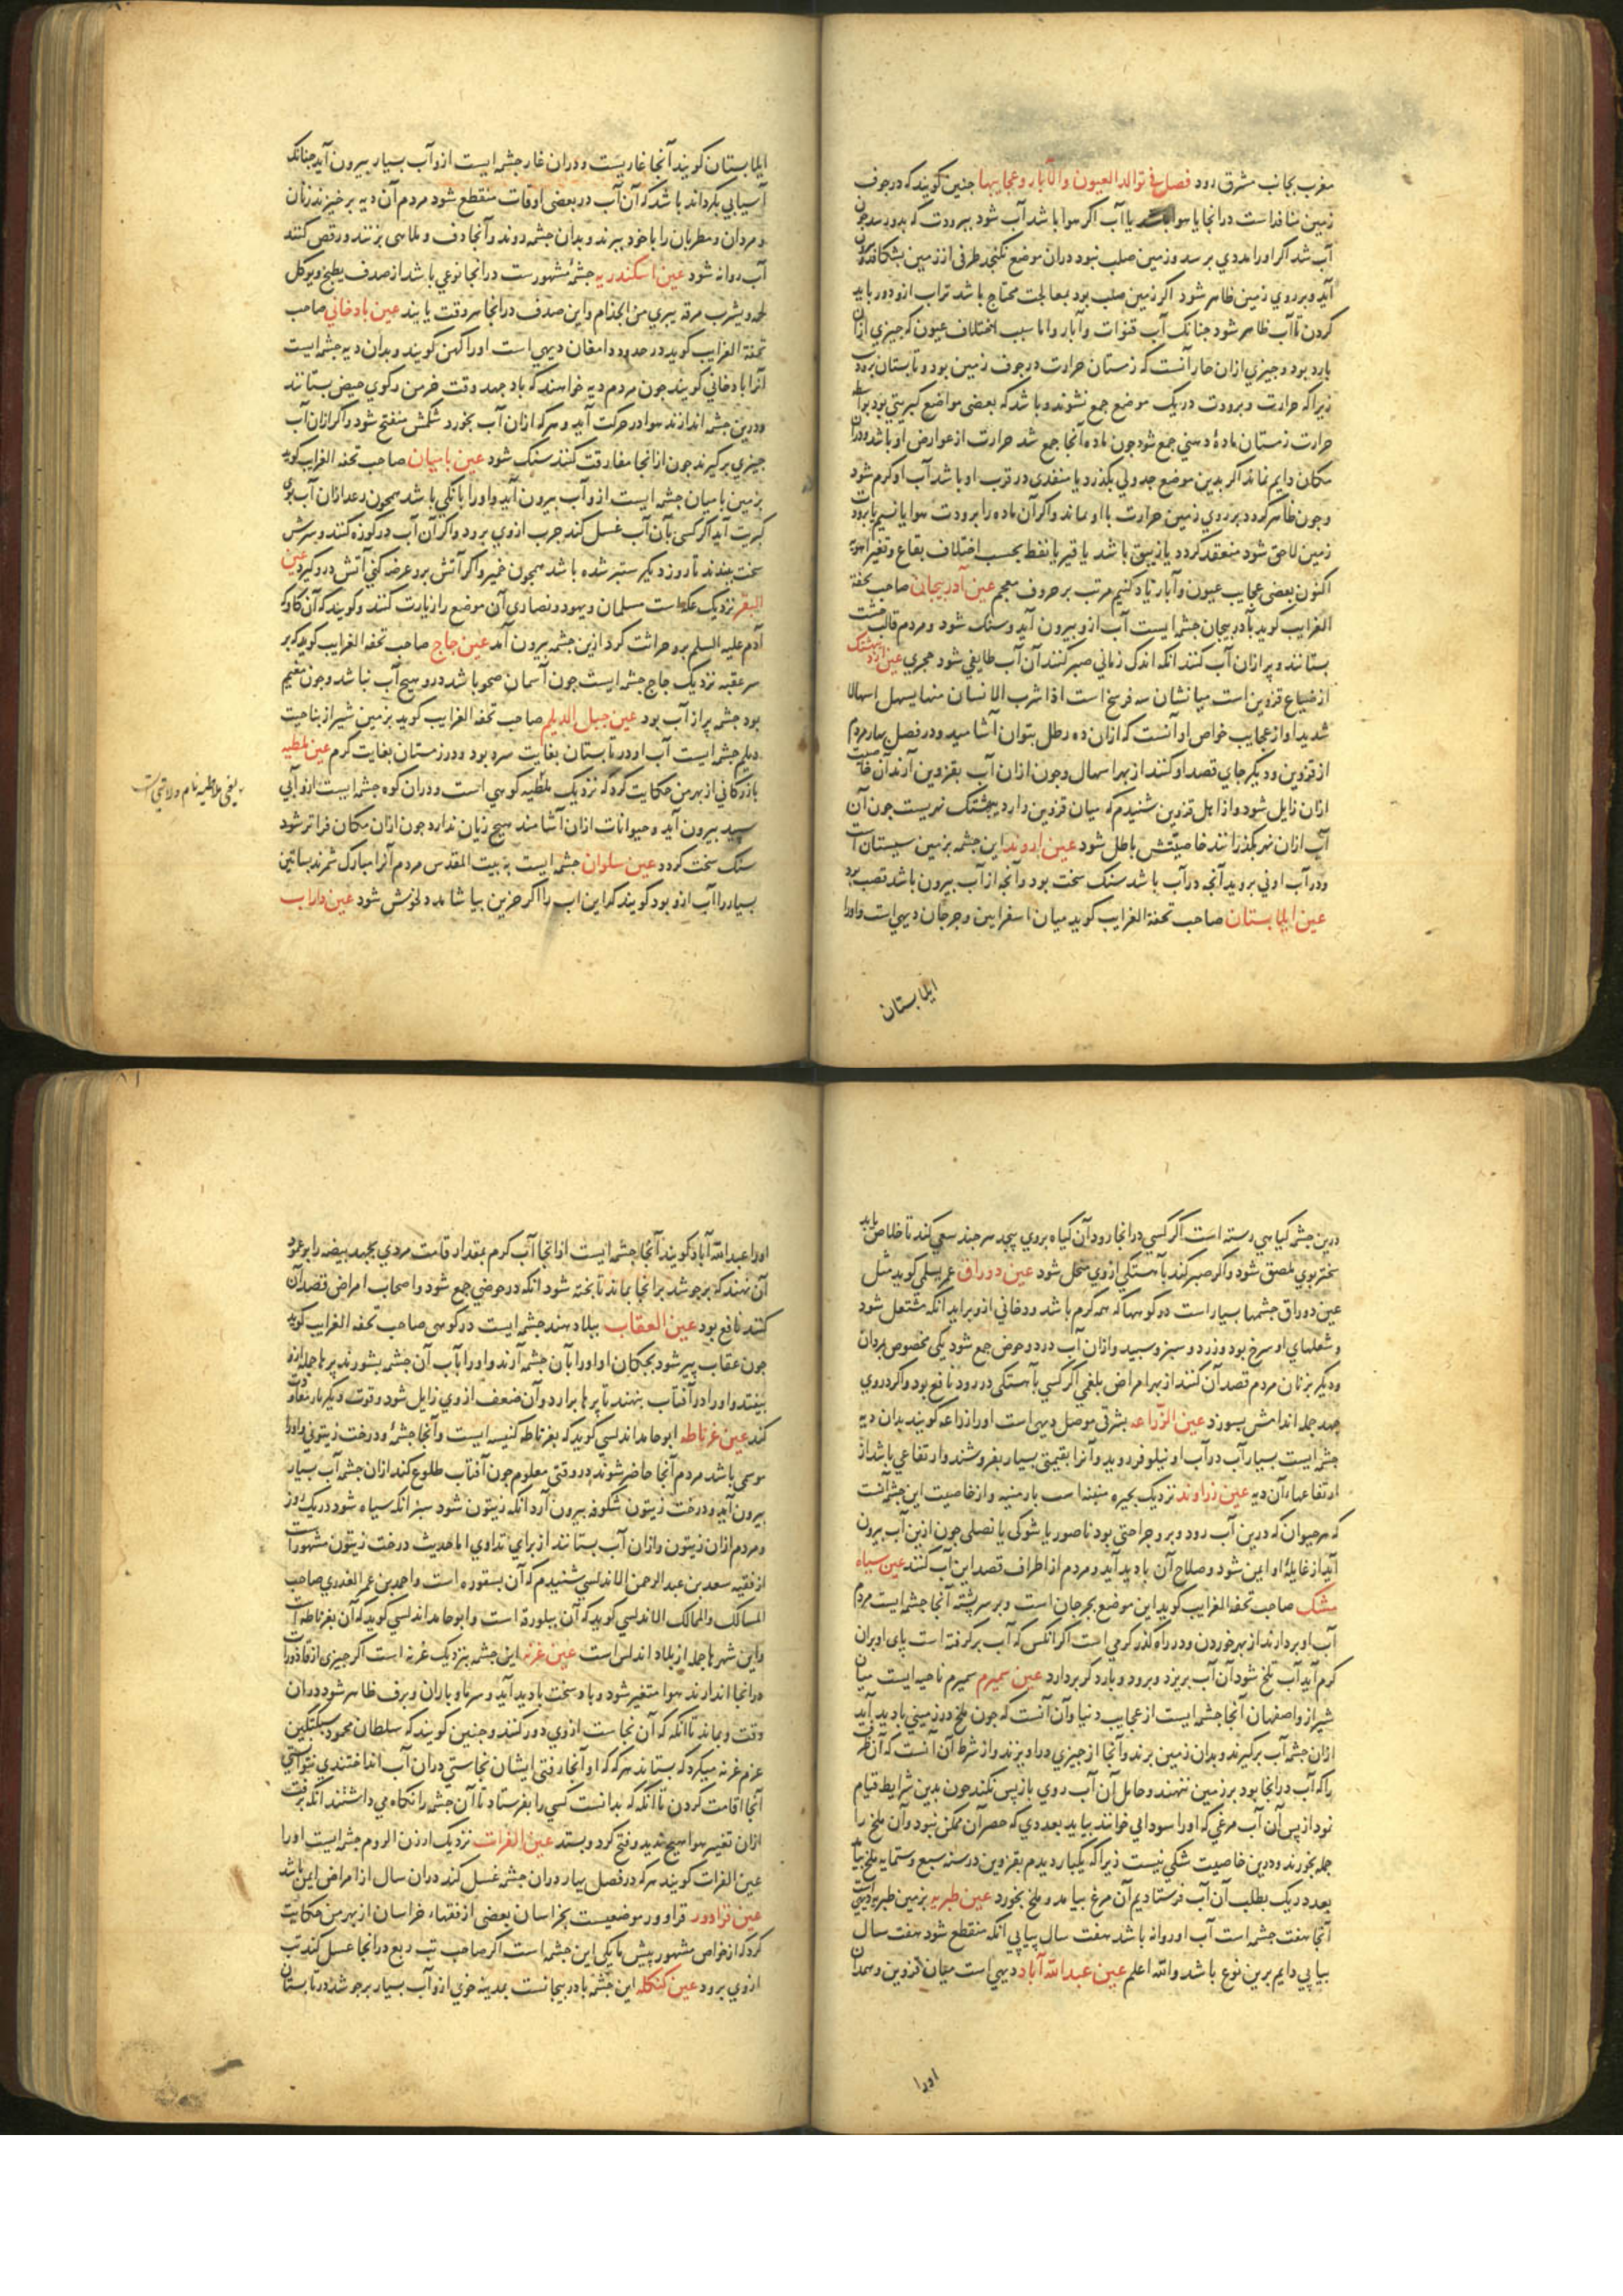 مغرب بجانب مشرق رود فصل في توالد العيون والآبار وعجايبها جنين كويند كه در جوف
زمين منافذ است در انجا يا هوا باشد يا آب اكر هوا باشد آب شود ببرودت كه بدو رسد چون
آب شد اكر اورا مددي برسد و زمين صلب نبود در ان موضع نكنجد طرفى از زمين بشكافد و برون
آيد و بر روي زمين ظاهر شود اكر زمين صلب بود بمعالجت محتاج باشد تراب ازو دور بايد
كردن تا آب ظاهر شود جنانك آب قنوات و آبار و اما سبب اختلاف عيون كه جيزي ازان
بارد بود و جيزي ازان حار آنست كه زمستان حرارت در جوف زمين بود و تابستان برودت
زيرا كه حرارت و برودت دريك موضع جمع نشوند و باشد كه بعضى مواضع كبريتي بود بواسطه
حرارت زمستان مادهٔ دهني جمع شود جون ماده آنجا جمع شد حرارت از عوارض او باشد و دران
مكان دايم نماند اكر بدين موضع جدولي بكذرد يا منفدى در قرب او باشد آب او كرم شود
و جون ظاهر كردد بر روي زمين حرارت با او بماند و اكر آن ماده را برودت هوا يا نسيم يا برودت
زمين لاحق شود منعقد كردد يا زيبق باشد يا قير يا نفط بحسب اختلاف بقاع و تغير اهويه
اكنون بعضى عجايب عيون و آبار ياد كنيم مرتب بر حروف معجم عين آذربيجان صاحب تحفة
الغرايب كويد بآذربيجان جشمه ايست آب ازو بيرون آيد و سنك شود و مردم قالب خشت
بستانند و پر ازان آب كنند انكه اندك زماني صبر كنند آن آب طايفي شود حجري عين اردبهشتك
از ضياع قزوين است ميانشان سه فرسخ است اذا شرب الانسان منها يسهل اسهالا
شديدا و از عجايب خواص او آنست كه ازان ده رطل بتوان آشاميد و در فصل بهار مردم
از قزوين و ديكر جاي قصد او كنند از بهر اسهال و جون ازان آب بقزوين آرند آن خاصيت
ازان زايل شود و از اهل قزوين شنيدم كه ميان قزوين و اردبهشتك نهريست جون آن
آب ازان نهر بكذرانند خاصيتش باطل شود عين اروند اين جشمه بزمين سيستان است
و در آب او ني برويد آنجه در آب باشد سنك سخت بود و آنجه از آب بيرون باشد قصب بود
عين ايلابستان صاحب تحفة الغرايب كويد ميان اسفراين و جرجان ديهي است و اورا
ايلابستان
ايلابستان كويند آنجا غاريست و دران غار جشمه ايست ازو آب بسيار بيرون آيد جنانك
آسيابي بكرداند باشد كه آن آب در بعضى اوقات منقطع شود مردم آن ديه برخيزند زنان
و مردان و مطربان را با خود ببرند و بدان جشمه دوند و آنجا دف و ملاهى بزنند و رقص كنند
آب روانه شود عين اسكندريه جشمهٔ مشهورست درانجا نوعي باشد از صدف يطبخ و يوكل
لحمه و يشرب مرقه يبري من الجذام و اين صدف درانجا هر وقت يابند عين بادخاني صاحب
تحفة الغرايب كويد در حدود دامغان ديهى است اورا كهن كويند و بدان ديه جشمه ايست
آنرا بادخاني كويند جون مردم ديه خواهند كه باد جهد وقت خرمن ركوي حيض بستانند
و درين جشمه اندازند هوا در حركت آيد و هركه ازان آب بخورد شكمش منفتح شود و اكر ازان آب
جيزي بركيرند جون از انجا مفارقت كنند سنك شود عين باميان صاحب تحفه الغرايب كويد
بزمين باميان جشمه ايست ازو آب بيرون آيد و اورا بانكي باشد همجون رعد ازان آب بوي
كبريت آيد اكر كسى بآن آب غسل كند جرب ازوي برود و اكر ان آب در كوزه كنند و سرش
سخت ببندند تا روز ديكر ستبر شده باشد همجون خمير و اكر آتش برو عرضه كني آتش درو كيرد عين
البقر نزديك عكه است مسلمان و يهود و نصاري آن موضع را زيارت كنند و كويند كه آن كاو كه
آدم عليه السلم برو حراثت كرد ازين جشمه بيرون آمد عين جاج صاحب تحفه الغرايب كويد كه بر
سر عقبه نزديك جاج جشمه ايست جون آسمان صحو باشد درو هيج آب نباشد و جون مغيم
بود جشمه پر از آب بود عين جبل الديلم صاحب تحفه الغرايب كويد بزمين شيراز بناحيت
ديلم جشمه ايست آب او در تابستان بغايت سرد بود و در زمستان بغايت كرم عين ملطيه
بازركاني از بهر من حكايت كرد كه نزديك ملطيه كوهي است و دران كوه جشمه ايست ازو آبي
سپيد بيرون آيد و حيوانات ازان آشامند هيج زيان ندارد جون ازان مكان فراتر شود
سنك سخت كردد عين سلوان جشمه ايست به بيت المقدس مردم آنرا مبارك شمرند بساتين
بسيار را آب ازو بود كويند كه اين اب را اكر حزين بياشامد دلخوش شود عين داراب
يعنى ملاطيه نام ولايتي است
درين جشمه كياهي رسته است اكر كسي درانجا رود آن كياه بروي پيجد هر جند سعي كند تا خلاص يابد
سختر بوي ملصق شود و اكر صبر كند بآهستكي ازوي منحل شود عين دوراق عمر سلمي كويد مثل
عين دوراق جشمها بسيار است در كوهها كه همه كرم باشد و دخاني ازو برايد انكه مشتعل شود
و شعلهاي او سرخ بود و زرد و سبز و سپيد و ازان آب در دو حوض جمع شود يكى مخصوص بمردان
و ديكر بزنان مردم قصد آن كنند از بهر امراض بلغمي اكر كسي بآهستكي در رود نافع بود و اكر در وي
جهد جمله اندامش بسوزد عين الزراعه بشرقى موصل ديهى است اورا زراعه كويند بدان ديه
جشمه ايست بسيار آب در آب او نيلوفر رويد و آنرا بقيمتى بسيار بفروشند و ارتفاعي باشد از
ارتفاعهاء آن ديه عين زراوند نزديك بحيره منتنه است بارمنيه و از خاصيت اين جشمه آنست
كه هر حيوان كه درين آب رود و برو جراحتى بود ناصور يا شوكى يا نصلى جون ازين آب بيرون
آيد از غايلهٔ او ايمن شود و صلاح آن باديد آيد و مردم از اطراف قصد اين آب كنند عين سياه
مشك صاحب تحفه الغرايب كويد اين موضع بجرجان است و بر سر پشته آنجا جشمه ايست مردم
آب او بردارند از بهر خوردن و در راه كذر كرمي است اكر انكس كه آب بركرفته است پاى او بران
كرم آيد آب تلخ شود آن آب بريزد و برود و باره ديكر بردارد عين سميرم سميرم ناحيه ايست ميان
شيراز و اصفهان آنجا جشمه ايست از عجايب دنيا و آن آنست كه جون ملخ در زميني باديد آيد
ازان جشمه آب بركيرند و بدان زمين برند و آنجا از جيزي دراويزند و از شرط آن آنست كه آن ظرف
را كه آب درانجا بود بر زمين ننهند و حامل آن آب روي بازپس نكند جون بدين شرايط قيام
نمود از پس آن آب مرغي كه اورا سوداني خوانند بيايد بعددي كه حصر آن ممكن نبود و آن ملخ را
جمله بخورند و درين خاصيت شكي نيست زيرا كه يكبار ديدم بقزوين در سنه سبع و ستمايه ملخ بيامد
بعد در يك بطلب آن آب فرستاديم آن مرغ بيامد و ملخ بخورد عين طبريه بزمين طبريه ديهى است
آنجا هفت جشمه است آب او روانه باشد هفت سال پياپي انكه منقطع شود هفت سال
پياپي دايم برين نوع باشد والله اعلم عين عبدالله آباد ديهي است ميان قزوين و همدان
اورا
اورا عبدالله آباد كويند آنجا جشمه ايست از انجا آب كرم بمقدار قامت مردي بجهد بيضه را بر عمود
آن نهند كه برجوشد بر انجا بماند تا پخته شود انكه در حوضي جمع شود و اصحاب امراض قصد آن
كنند نافع بود عين العقاب ببلاد هند جشمه ايست در كوهى صاحب تحفه الغرايب كويد
جون عقاب پير شود بجكان او اورا بآن جشمه آرند و اورا بآب آن جشمه بشورند پرها جمله ازو
بيفتد و اورا در آفتاب بنهند تا پرها برارد و آن ضعف ازوي زايل شود و قوت ديكر بار معاودت
كند عين غرناطه ابو حامد اندلسي كويد كه بغرناطه كنيسه ايست و آنجا جشمهٔ و درخت زيتوني و اورا
موسمى باشد مردم آنجا حاضر شوند در وقتى معلوم جون آفتاب طلوع كند ازان جشمه آب بسيار
بيرون آيد و درخت زيتون شكوفه بيرون آرد انكه زيتون شود سبز انكه سياه شود در يك روز
و مردم ازان زيتون و ازان آب بستانند از براي تداوي اما حديث درخت زيتون مشهور است
از فقيه سعد بن عبد الرحمن الاندلسي شنيدم كه آن بسقوره است و احمد بن عمر العذري صاحب
المسالك والممالك الاندلسي كويد كه آن ببلورة است و ابو حامد اندلسي كويد كه آن بغرناطه است
و اين شهرها جمله از بلاد اندلس است عين غزنه اين جشمه بنزديك غزنه است اكر جيزى از قاذورات
درانجا اندازند هوا متغير شود و باد سخت باديد آيد و سرما و باران و برف ظاهر شود دران
وقت و بماند تا انكه كه آن نجاست ازوي دور كنند و جنين كويند كه سلطان محمود سبكتكين
عزم غزنه ميكرد كه بستاند هركه كه او آنجا رفتى ايشان نجاستي دران آب انداختندي نتوانستي
آنجا اقامت كردن تا آنكه كه بدانست كسي را بفرستاد تا آن جشمه را نكاه مي داشتند انكه برفت
ازان تغيير هوا هيج نديد و فتح كرد و بستد عين الفرات نزديك ارزن الروم جشمه ايست اورا
عين الفرات كويند هركه در فصل بهار دران جشمه غسل كند دران سال از امراض ايمن باشد
عين قراور قراور موضعيست بخراسان بعضى از فقهاء خراسان از بهر من حكايت
كرد كه از خواص مشهور پيش ما يكى اين جشمه است اكر صاحب تب ربع درانجا غسل كند تب
ازوي برود عين كنكله اين جشمه بآذربيجانست بمدينه خوي ازو آب بسيار برجوشد در تابستان